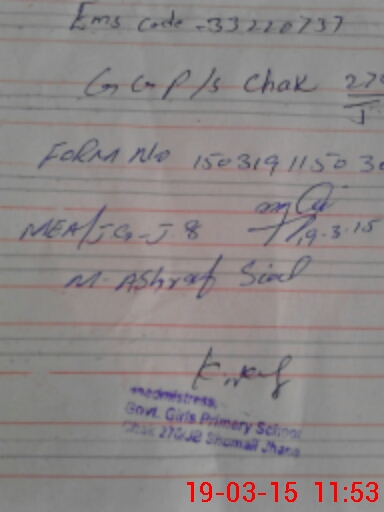 Ems Code - 33220737
G G P/s Chak 270
J
FORM No 150319115030
MEA/JG-J.8 19-3-15
M. AShraf Sial
Headmistress,
Govt. Girls Primary School
Chak 270/JB Shumali Jhang
19-03-15 11:53